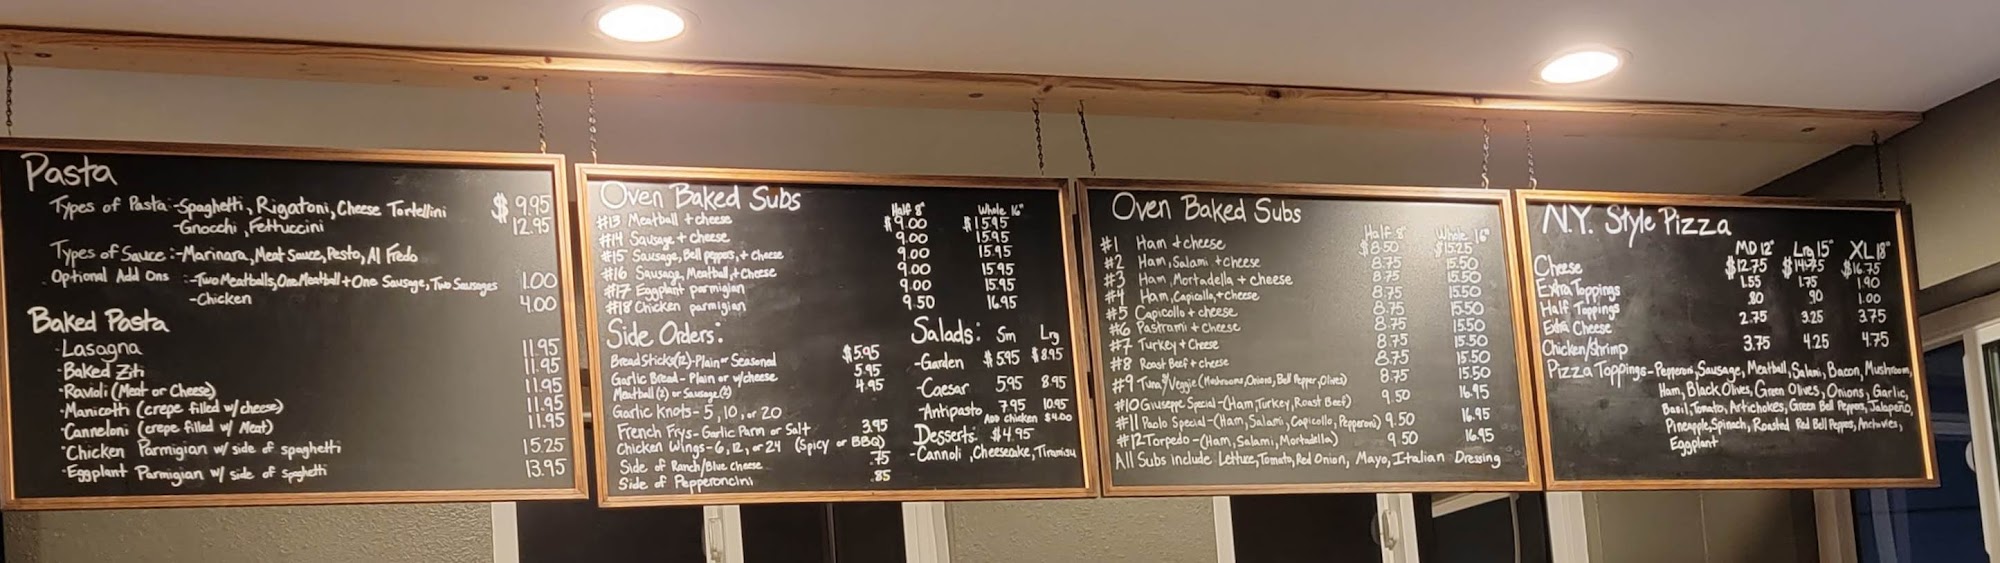 Pasta
Types of Pasta:-Spaghetti, Rigatoni, Cheese Tortellini $9.95
-Gnocchi, Fettuccini 12.95
Types of Sauce:-Marinara, Meat Sauce, Pesto, Al Fredo
Optional Add Ons :-Two Meatballs, One Meatball + One Sausage, Two Sausages 1.00
-Chicken 4.00
Baked Pasta
-Lasagna 11.95
-Baked Ziti 11.95
-Ravioli (Meat or Cheese) 11.95
-Manicotti (crepe filled w/ cheese) 11.95
-Canneloni (crepe filled w/ Meat) 11.95
-Chicken Parmigian w/ side of spaghetti 15.25
-Eggplant Parmigian w/ side of spaghetti 13.95
Oven Baked Subs Half 8" Whole 16"
#13 Meatball + cheese $9.00 $15.95
#14 Sausage + cheese 9.00 15.95
#15 Sausage, Bell peppers, + Cheese 9.00 15.95
#16 Sausage, Meatball, + Cheese 9.00 15.95
#17 Eggplant parmigian 9.00 15.95
#18 Chicken parmigian 9.50 16.95
Side Orders:
Bread Sticks (12)-Plain or Seasoned $5.95
Garlic Bread - Plain or w/cheese 5.95
Meatball (2) or Sausage (2) 4.95
Garlic Knots - 5, 10, or 20
French Frys - Garlic Parm or Salt 3.95
Chicken Wings - 6, 12, or 24 (Spicy or BBQ)
Side of Ranch/Blue cheese .75
Side of Pepperoncini .85
Salads: Sm Lrg
-Garden $5.95 $8.95
-Caesar 5.95 8.95
-Antipasto 7.95 10.95
Add chicken $4.00
Desserts: $4.95
-Cannoli, Cheesecake, Tiramisu
Oven Baked Subs Half 8" Whole 16"
#1 Ham + cheese $8.50 $15.25
#2 Ham, Salami + cheese 8.75 15.50
#3 Ham, Mortadella + cheese 8.75 15.50
#4 Ham, Capicollo, + cheese 8.75 15.50
#5 Capicollo + cheese 8.75 15.50
#6 Pastrami + Cheese 8.75 15.50
#7 Turkey + Cheese 8.75 15.50
#8 Roast Beef + cheese 8.75 15.50
#9 Tuna or Veggie (Mushrooms, Onions, Bell Pepper, Olives) 8.75 15.50
#10 Giuseppe Special - (Ham, Turkey, Roast Beef) 9.50 16.95
#11 Paolo Special - (Ham, Salami, Capicollo, Pepperoni) 9.50 16.95
#12 Torpedo - (Ham, Salami, Mortadella) 9.50 16.95
All Subs include Lettuce, Tomato, Red Onion, Mayo, Italian Dressing
N.Y. Style Pizza
MD 12" Lrg 15" XL 18"
Cheese $12.75 $14.75 $16.75
Extra Toppings 1.55 1.75 1.90
Half Toppings .80 .90 1.00
Extra Cheese 2.75 3.25 3.75
Chicken/Shrimp 3.75 4.25 4.75
Pizza Toppings - Pepperoni, Sausage, Meatball, Salami, Bacon, Mushroom,
Ham, Black Olives, Green Olives, Onions, Garlic,
Basil, Tomato, Artichokes, Green Bell Peppers, Jalapeño,
Pineapple, Spinach, Roasted Red Bell Peppers, Anchovies,
Eggplant